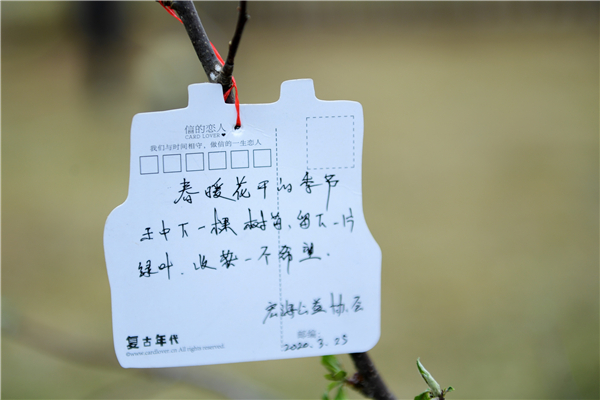 信的恋人
CARD LOVER
我们与时间相守，做信的一生恋人
春暖花开的季节
种下一棵树苗，留下一片
绿叶，收获一个希望.
宏海公益协会
邮编：
2020.3.25
复古年代
©www.cardlover.cn All rights reserved.